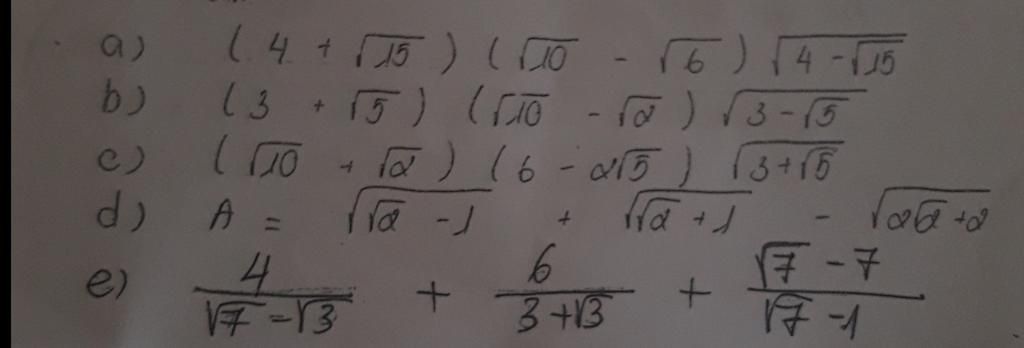 a) (4 + √15) (√10 - √6) √(4 - √15)
b) (3 + √5) (√10 - √2) √(3 - √5)
c) (√10 + √2) (6 - 2√5) √(3 + √5)
d) A = √(√2 - 1) + √(√2 + 1) - √(2√2 + 2)
e) 4/(√7 - √3) + 6/(3 + √3) + (√7 - 7)/(√7 - 1)